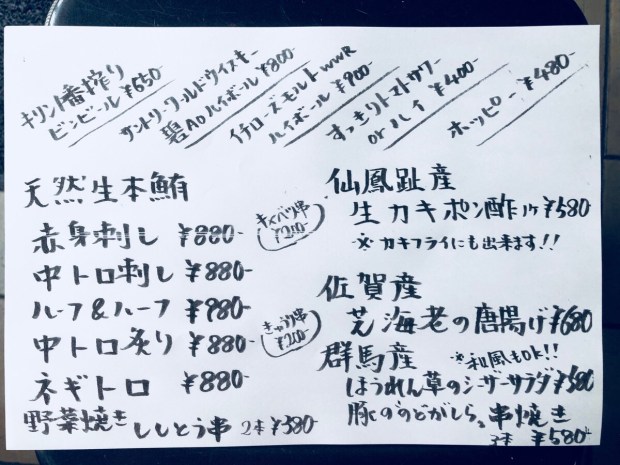 キリン一番搾り
ビンビール ¥650-
サントリーワールドウイスキー
碧Aoハイボール ¥800-
イチローズモルトWWR
ハイボール ¥900-
すっきりトマトサワー
orハイ ¥400-
ホッピー ¥480-
天然生本鮪
赤身刺し ¥880-
中トロ刺し ¥880-
ハーフ&ハーフ ¥980-
中トロ炙り ¥880-
ネギトロ ¥880-
キャベツ串
¥200-
きゅうり串
¥200-
野菜焼き
ししとう串 2本 ¥380-
仙鳳趾産
生カキポン酢 1ケ ¥580
※カキフライにも出来ます!!
佐賀産
芝海老の唐揚げ ¥680
群馬産
※和風もok!!
ほうれん草のシーザーサラダ ¥580
豚ののどがしら。串焼き
2本 ¥580-